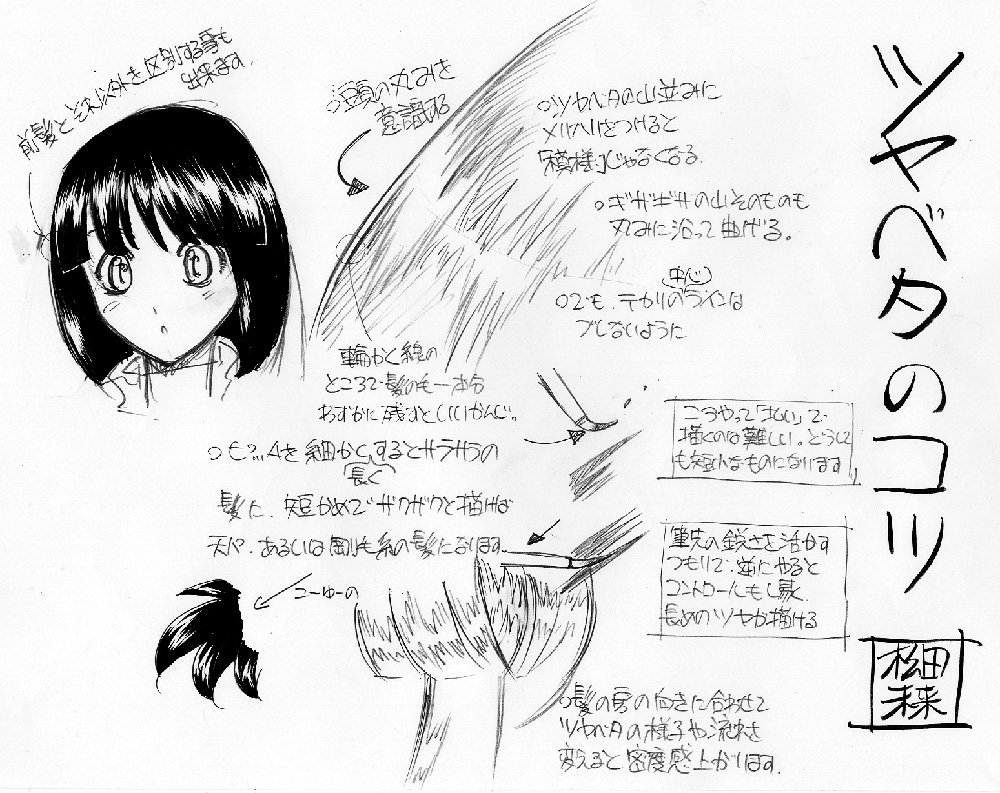 ツヤベタのコツ
松田
未来
前髪とそれ以外を区別する事も
出来ます.
○頭の丸みを
意識する
○ツヤベタの山並みに
メリハリをつけると
「模様」じゃなくなる.
○ギザギザの山そのものも
丸みに沿って曲げる。
○でも、テカリの中心ラインは
ブレないように
輪かく線の
ところで髪の毛一本分
わずかに残すといいかんじ。
長く
髪に.短かめでザクザクと描けば
天パ.あるいは剛毛系の髪になります.
こーゆーの
こうやって「払い」で
描くのは難しい。どうして
も短小なものになります
筆先の鋭さを活かす
つもりで.逆にやると
コントロールもし易く.
長めのツヤが描ける
○髪の房の向きに合わせて
ツヤベタの様子や流れを
変えると密度感上がります.